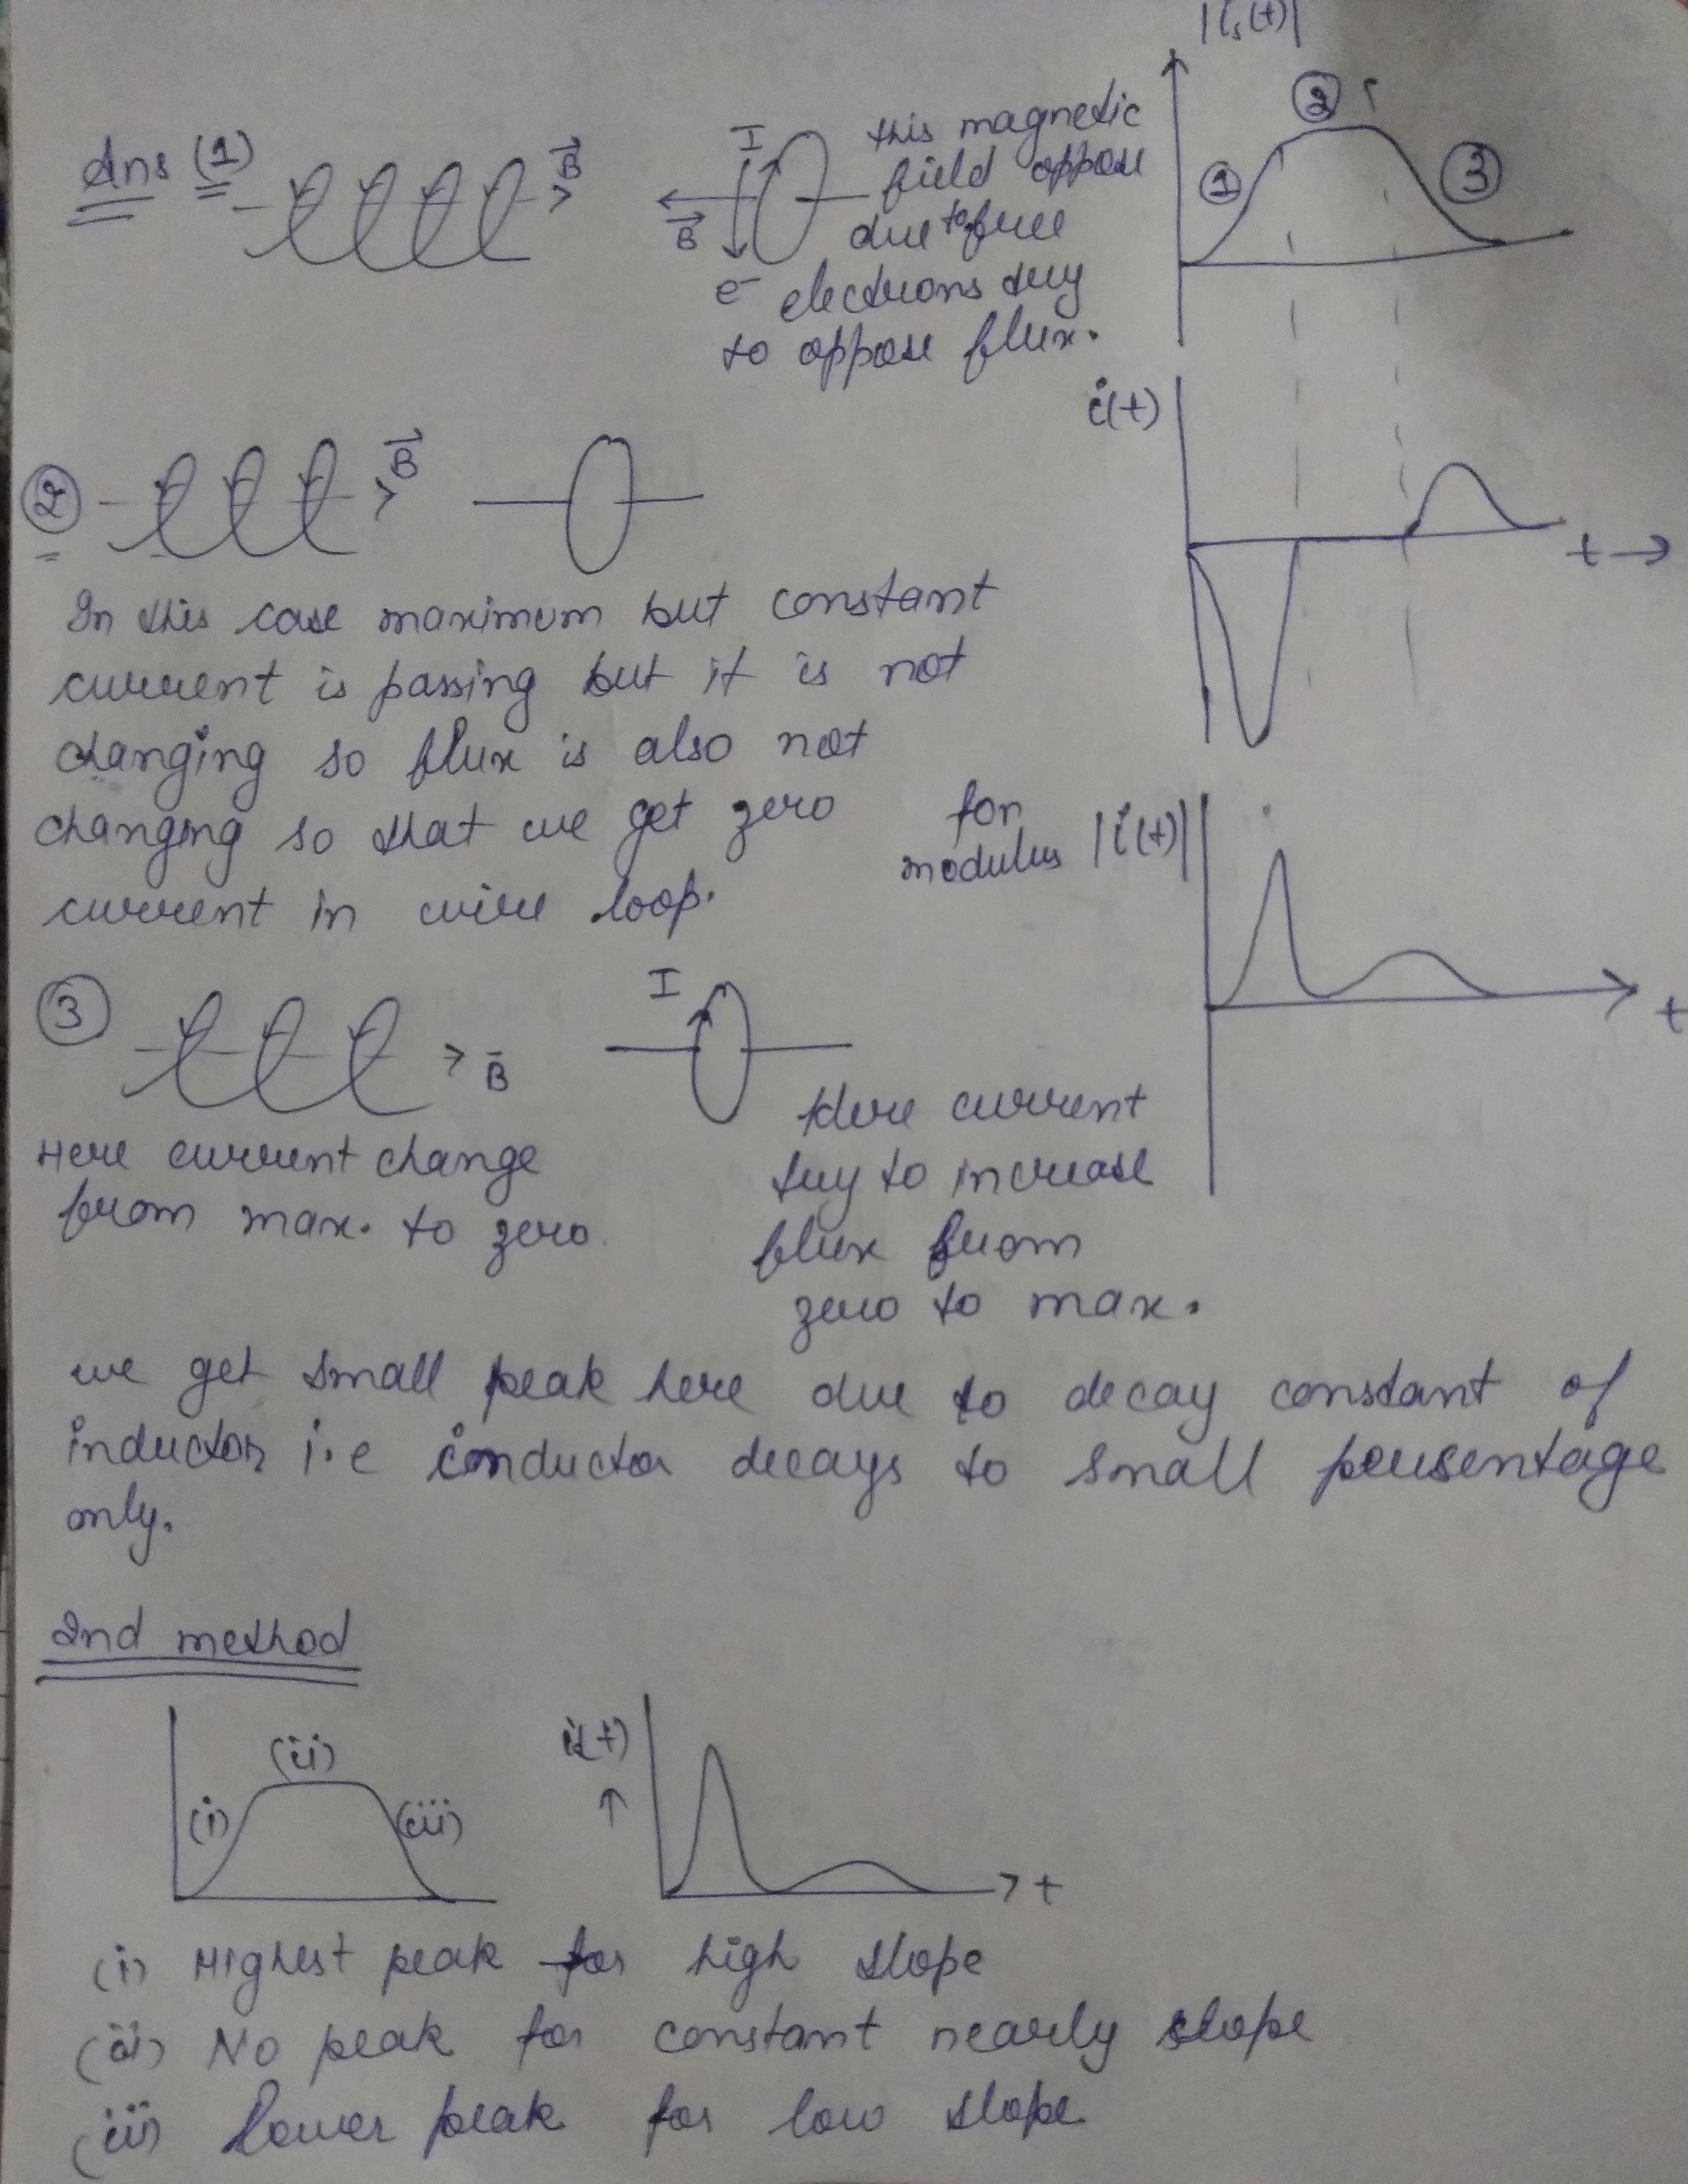 |is(t)|
Ans (1)
B
I
this magnetic
field oppose
due to free
e⁻ electrons try
to oppose flux.
B
① ② ③
i(t)
t →
② B
In this case maximum but constant
current is passing but it is not
changing so flux is also not
changing so that we get zero
current in wire loop.
for
modulus |i(t)|
t
③ B
I
Here current change
from max. to zero.
Here current
try to increase
flux from
zero to max.
we get small peak here due to decay constant of
inductor i.e conductor decays to small persentage
only.
2nd method
(i) (ii) (iii)
i(t)
↑
→ t
(i) Highest peak for high slope
(ii) No peak for constant nearly slope
(iii) Lower peak for low slope